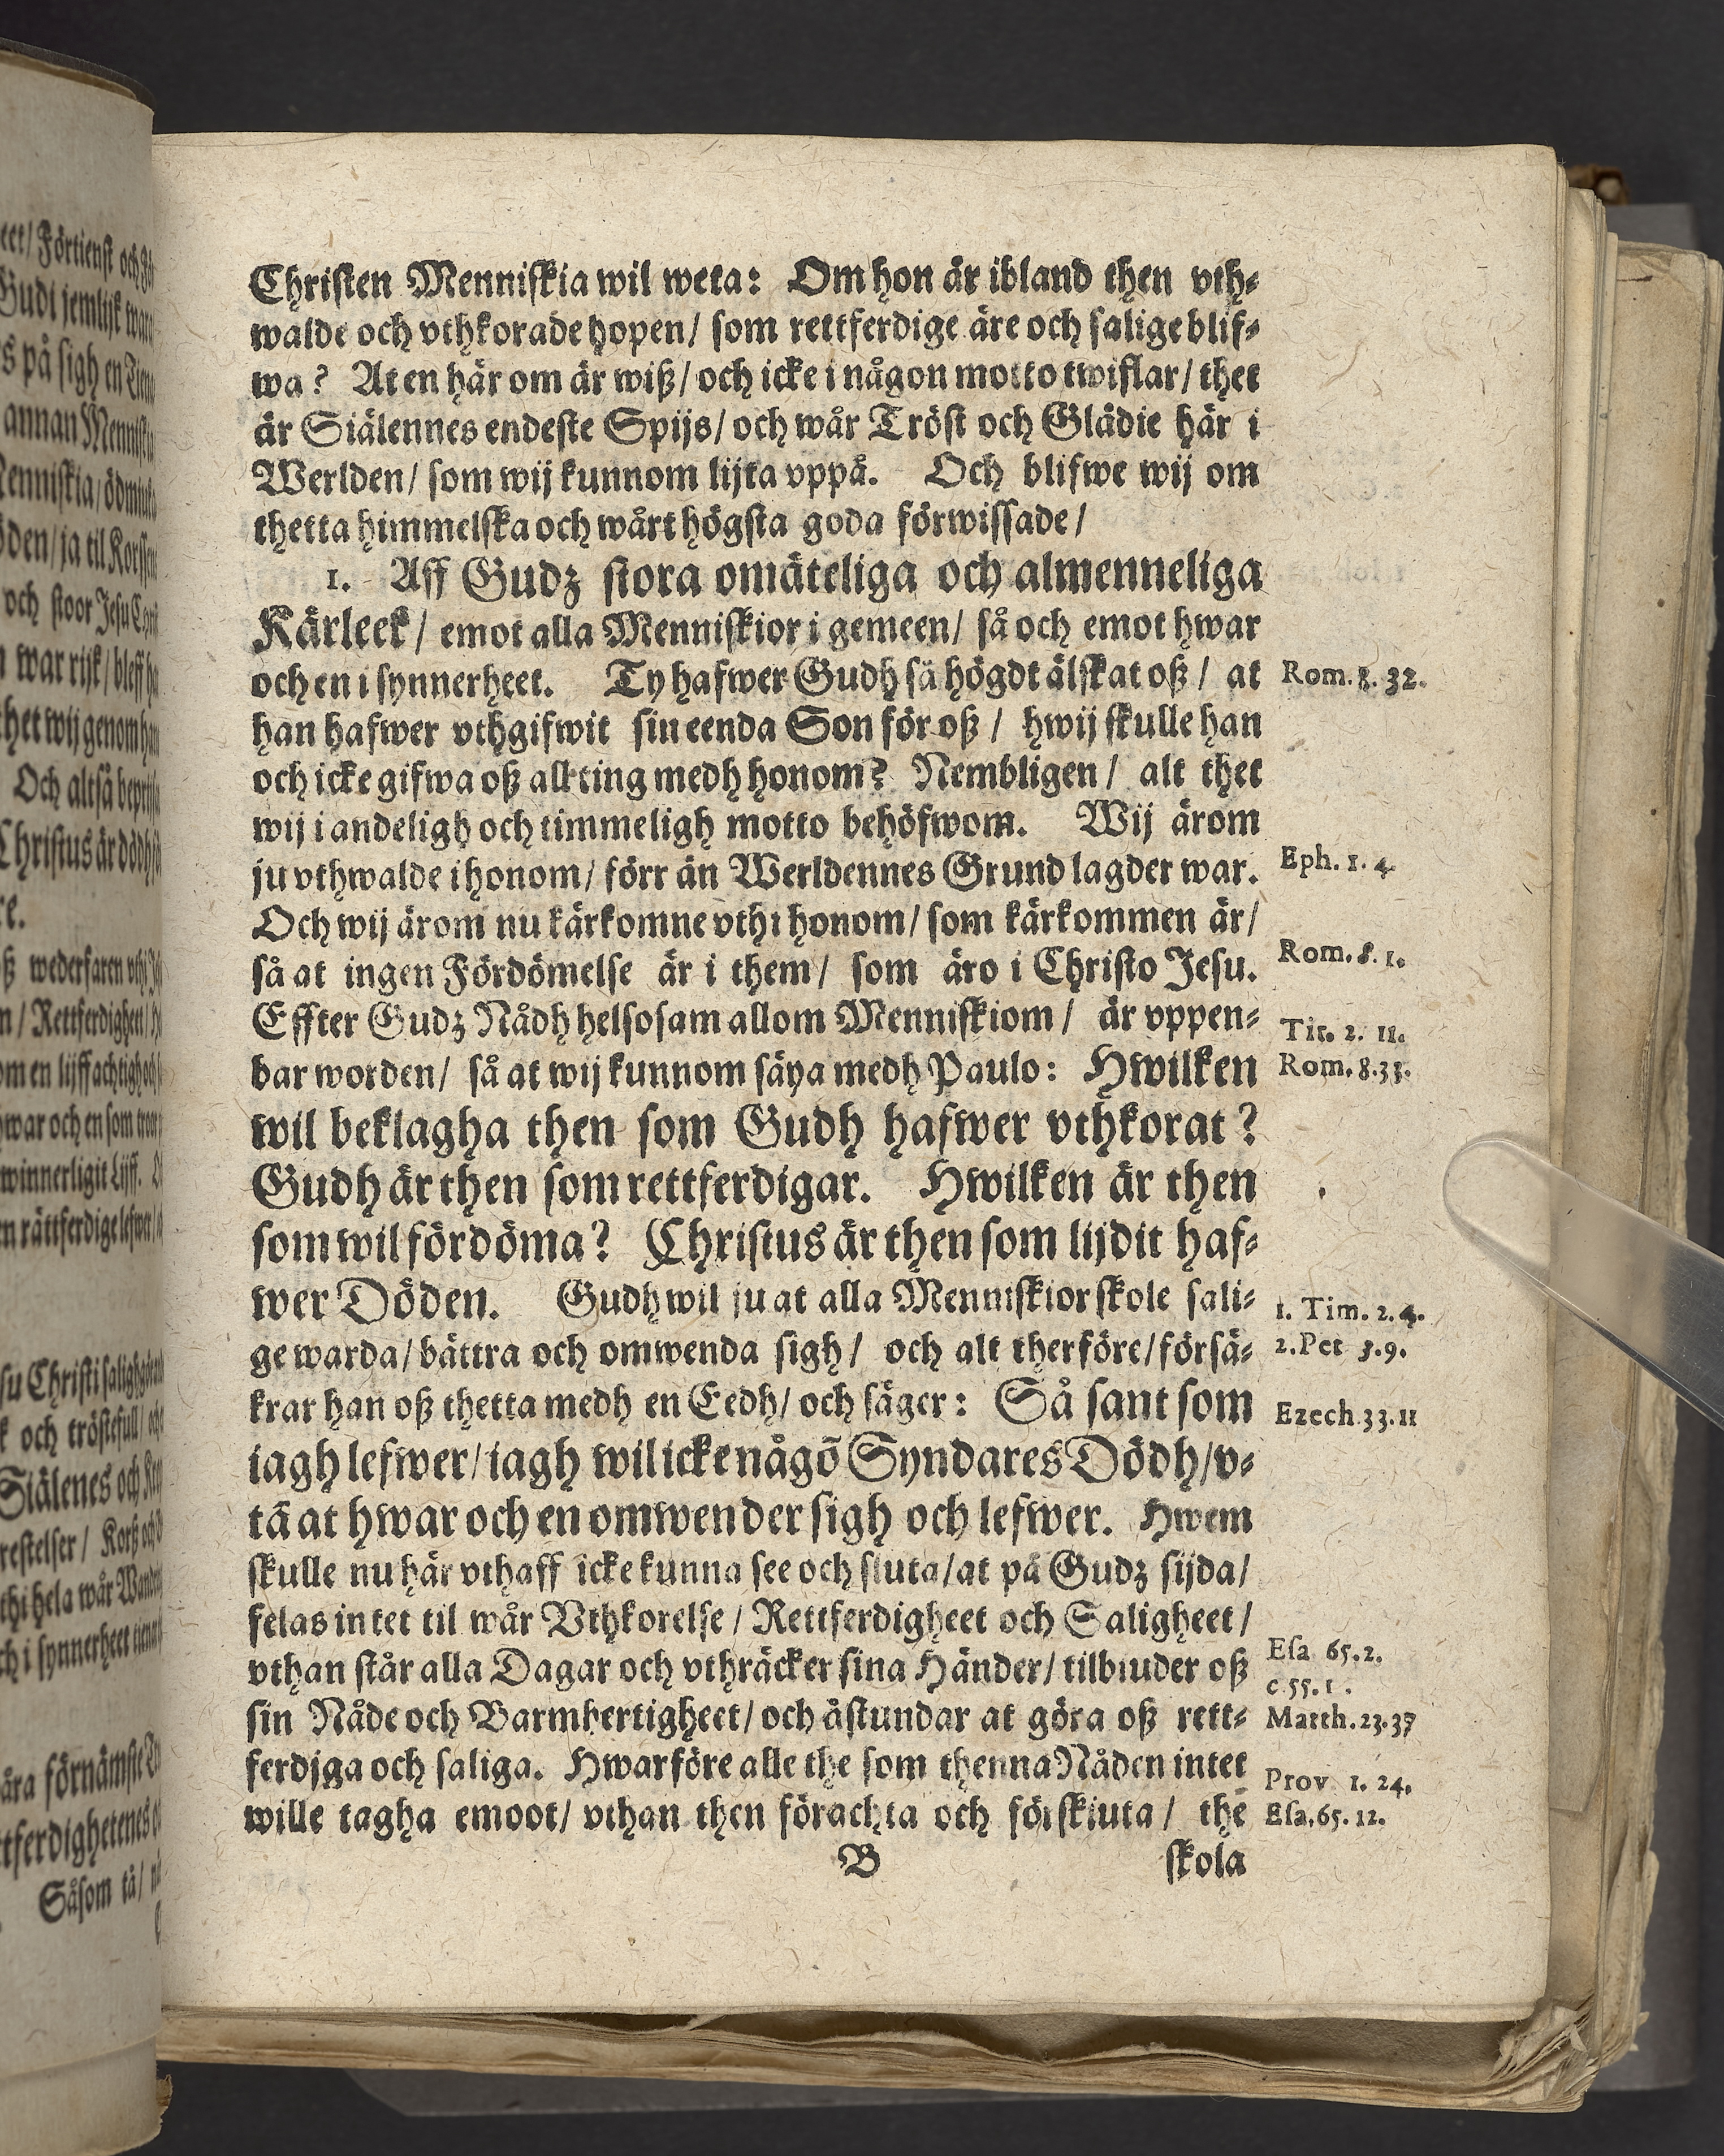 Christen Menniskia wil weta: Om hon är ibland then vth-
walde och vthkorade hopen/ som rettferdige äre och salige blif-
wa? At en här om är wiß/ och icke i någon motto twiflar/ thet
är Siälennes endeste Spijs/ och wår Tröst och Glädie här i
Werlden/ som wij kunnom lijta vppå. Och blifwe wij om
thetta himmelska och wårt högsta goda förwissade/
1. Aff Gudz stora omäteliga och almenneliga
Kärleek/ emot alla Menniskior i gemeen/ så och emot hwar
och en i synnerheet. Ty hafwer Gudh så högdt älskat oß/ at
Rom. 8. 32.
han hafwer vthgifwit sin eenda Son för oß/ hwij skulle han
och icke gifwa oß all ting medh honom? Nembligen/ alt thet
wij i andeligh och timmeligh motto behöfwom. Wij ärom
ju vthwalde i honom/ förr än Werldennes Grund lagder war.
Eph. 1. 4.
Och wij ärom nu kärkomne vthi honom/ som kärkommen är/
så at ingen Fördömelse är i them/ som äro i Christo Jesu.
Rom. 8. 1.
Effter Gudz Nådh helsosam allom Menniskiom/ är vppen-
Tit. 2. 11.
bar worden/ så at wij kunnom säya medh Paulo: Hwilken
Rom. 8.33.
wil beklagha then som Gudh hafwer vthkorat?
Gudh är then som rettferdigar. Hwilken är then
som wil fördöma? Christus är then som lijdit haf-
wer Döden. Gudh wil ju at alla Menniskior skole sali-
1. Tim. 2. 4.
ge warda/ bättra och omwenda sigh/ och alt therföre/ försä-
2. Pet 3.9.
krar han oß thetta medh en Eedh/ och säger: Så sant som
Ezech.33.11
iagh lefwer/ iagh wil icke någō Syndares Dödh/ v-
tā at hwar och en omwender sigh och lefwer. Hwem
skulle nu här vthaff icke kunna see och sluta/ at på Gudz sijda/
felas intet til wår Vthkorelse/ Rettferdigheet och Saligheet/
vthan står alla Dagar och vthräcker sina Händer/ tilbiuder oß
Esa 65.2.
c 55.1.
sin Nåde och Barmhertigheet/ och åstundar at göra oß rett-
Matth.23.37
ferdjga och saliga. Hwarföre alle the som thenna Nåden intet
Prov 1. 24.
wille tagha emoot/ vthan then förachta och förskiuta/ the
Esa.65. 12.
B
skola